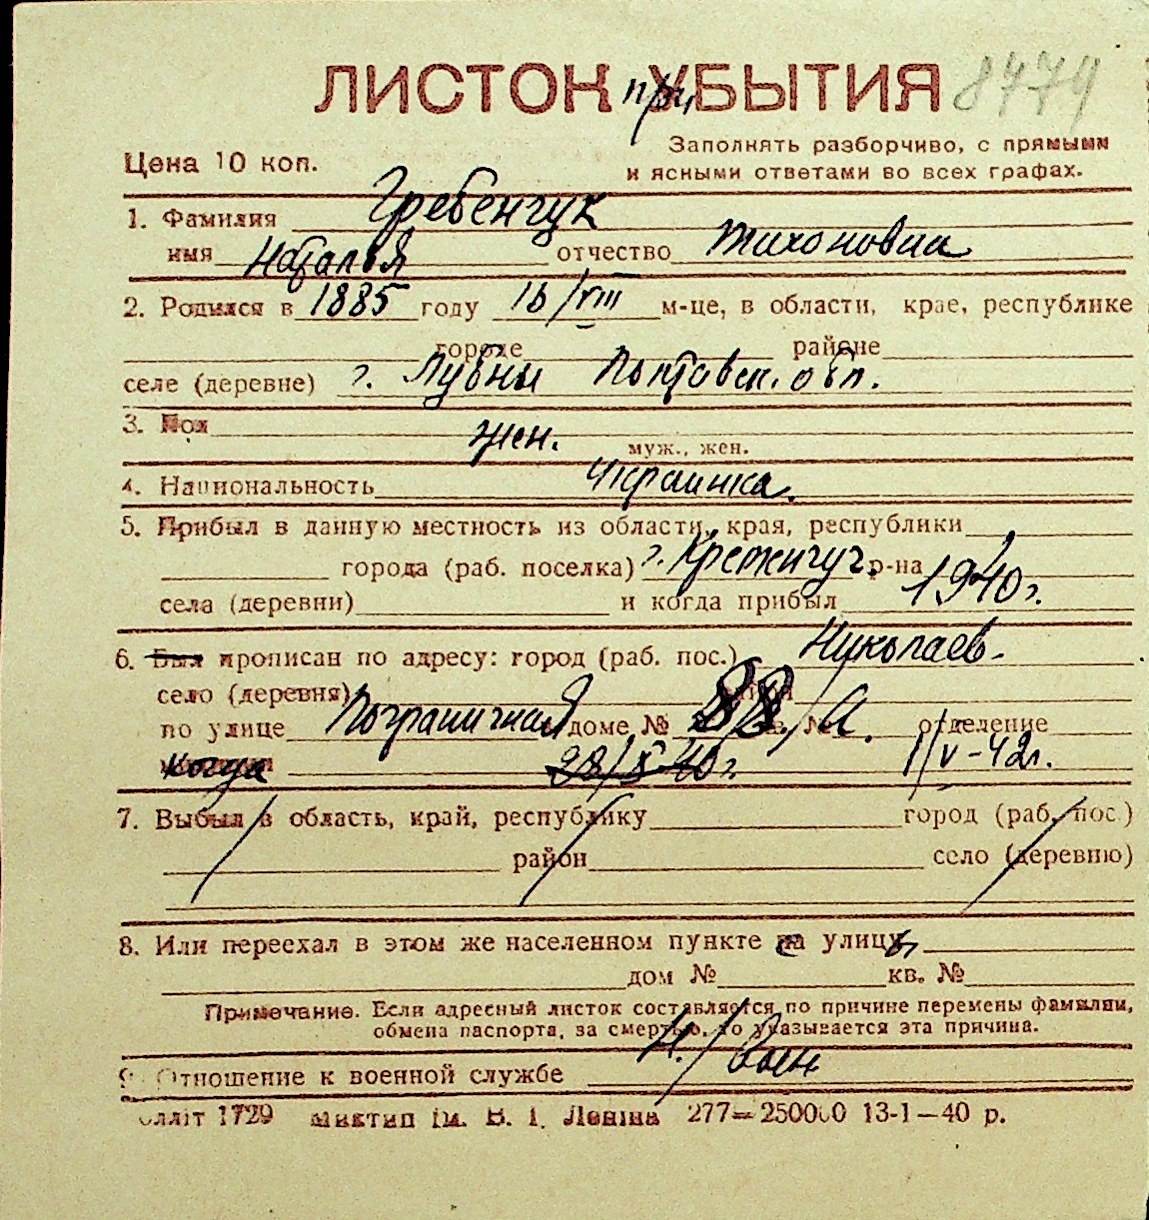 ЛИСТОК при УБЫТИЯ 8479
Заполнять разборчиво, с прямыми
Цена 10 коп. и ясными ответами во всех графах.
1. Фамилия Гребенчук
имя Наталья отчество Тихоновна
2. Родился в 1885 году 16/VIII м-це, в области, крае, республике
городе районе
селе (деревне) г. Лубны Полтовск. обл.
3. Пол жен.
муж., жен.
4. Национальность Украинка.
5. Прибыл в данную местность из области, края, республики
города (раб. поселка) г. Кременчуг. р-на
села (деревни) и когда прибыл 1940г.
6. Был прописан по адресу: город (раб. пос.) Николаев.
село (деревня) район
по улице Пограничная доме № 88/а. кв. № отделение
когда 28/X-40г. 1/V-42г.
7. Выбыл в область, край, республику город (раб. пос.)
район село (деревню)
8. Или переехал в этом же населенном пункте с улицы
дом № кв. №
Примечание. Если адресный листок составляется по причине перемены фамилии,
обмена паспорта, за смертью, то указывается эта причина.
9. Отношение к военной службе Н/воен
олліт 1729 Миктип ім. В. І. Леніна 277—250000 13-1—40 р.